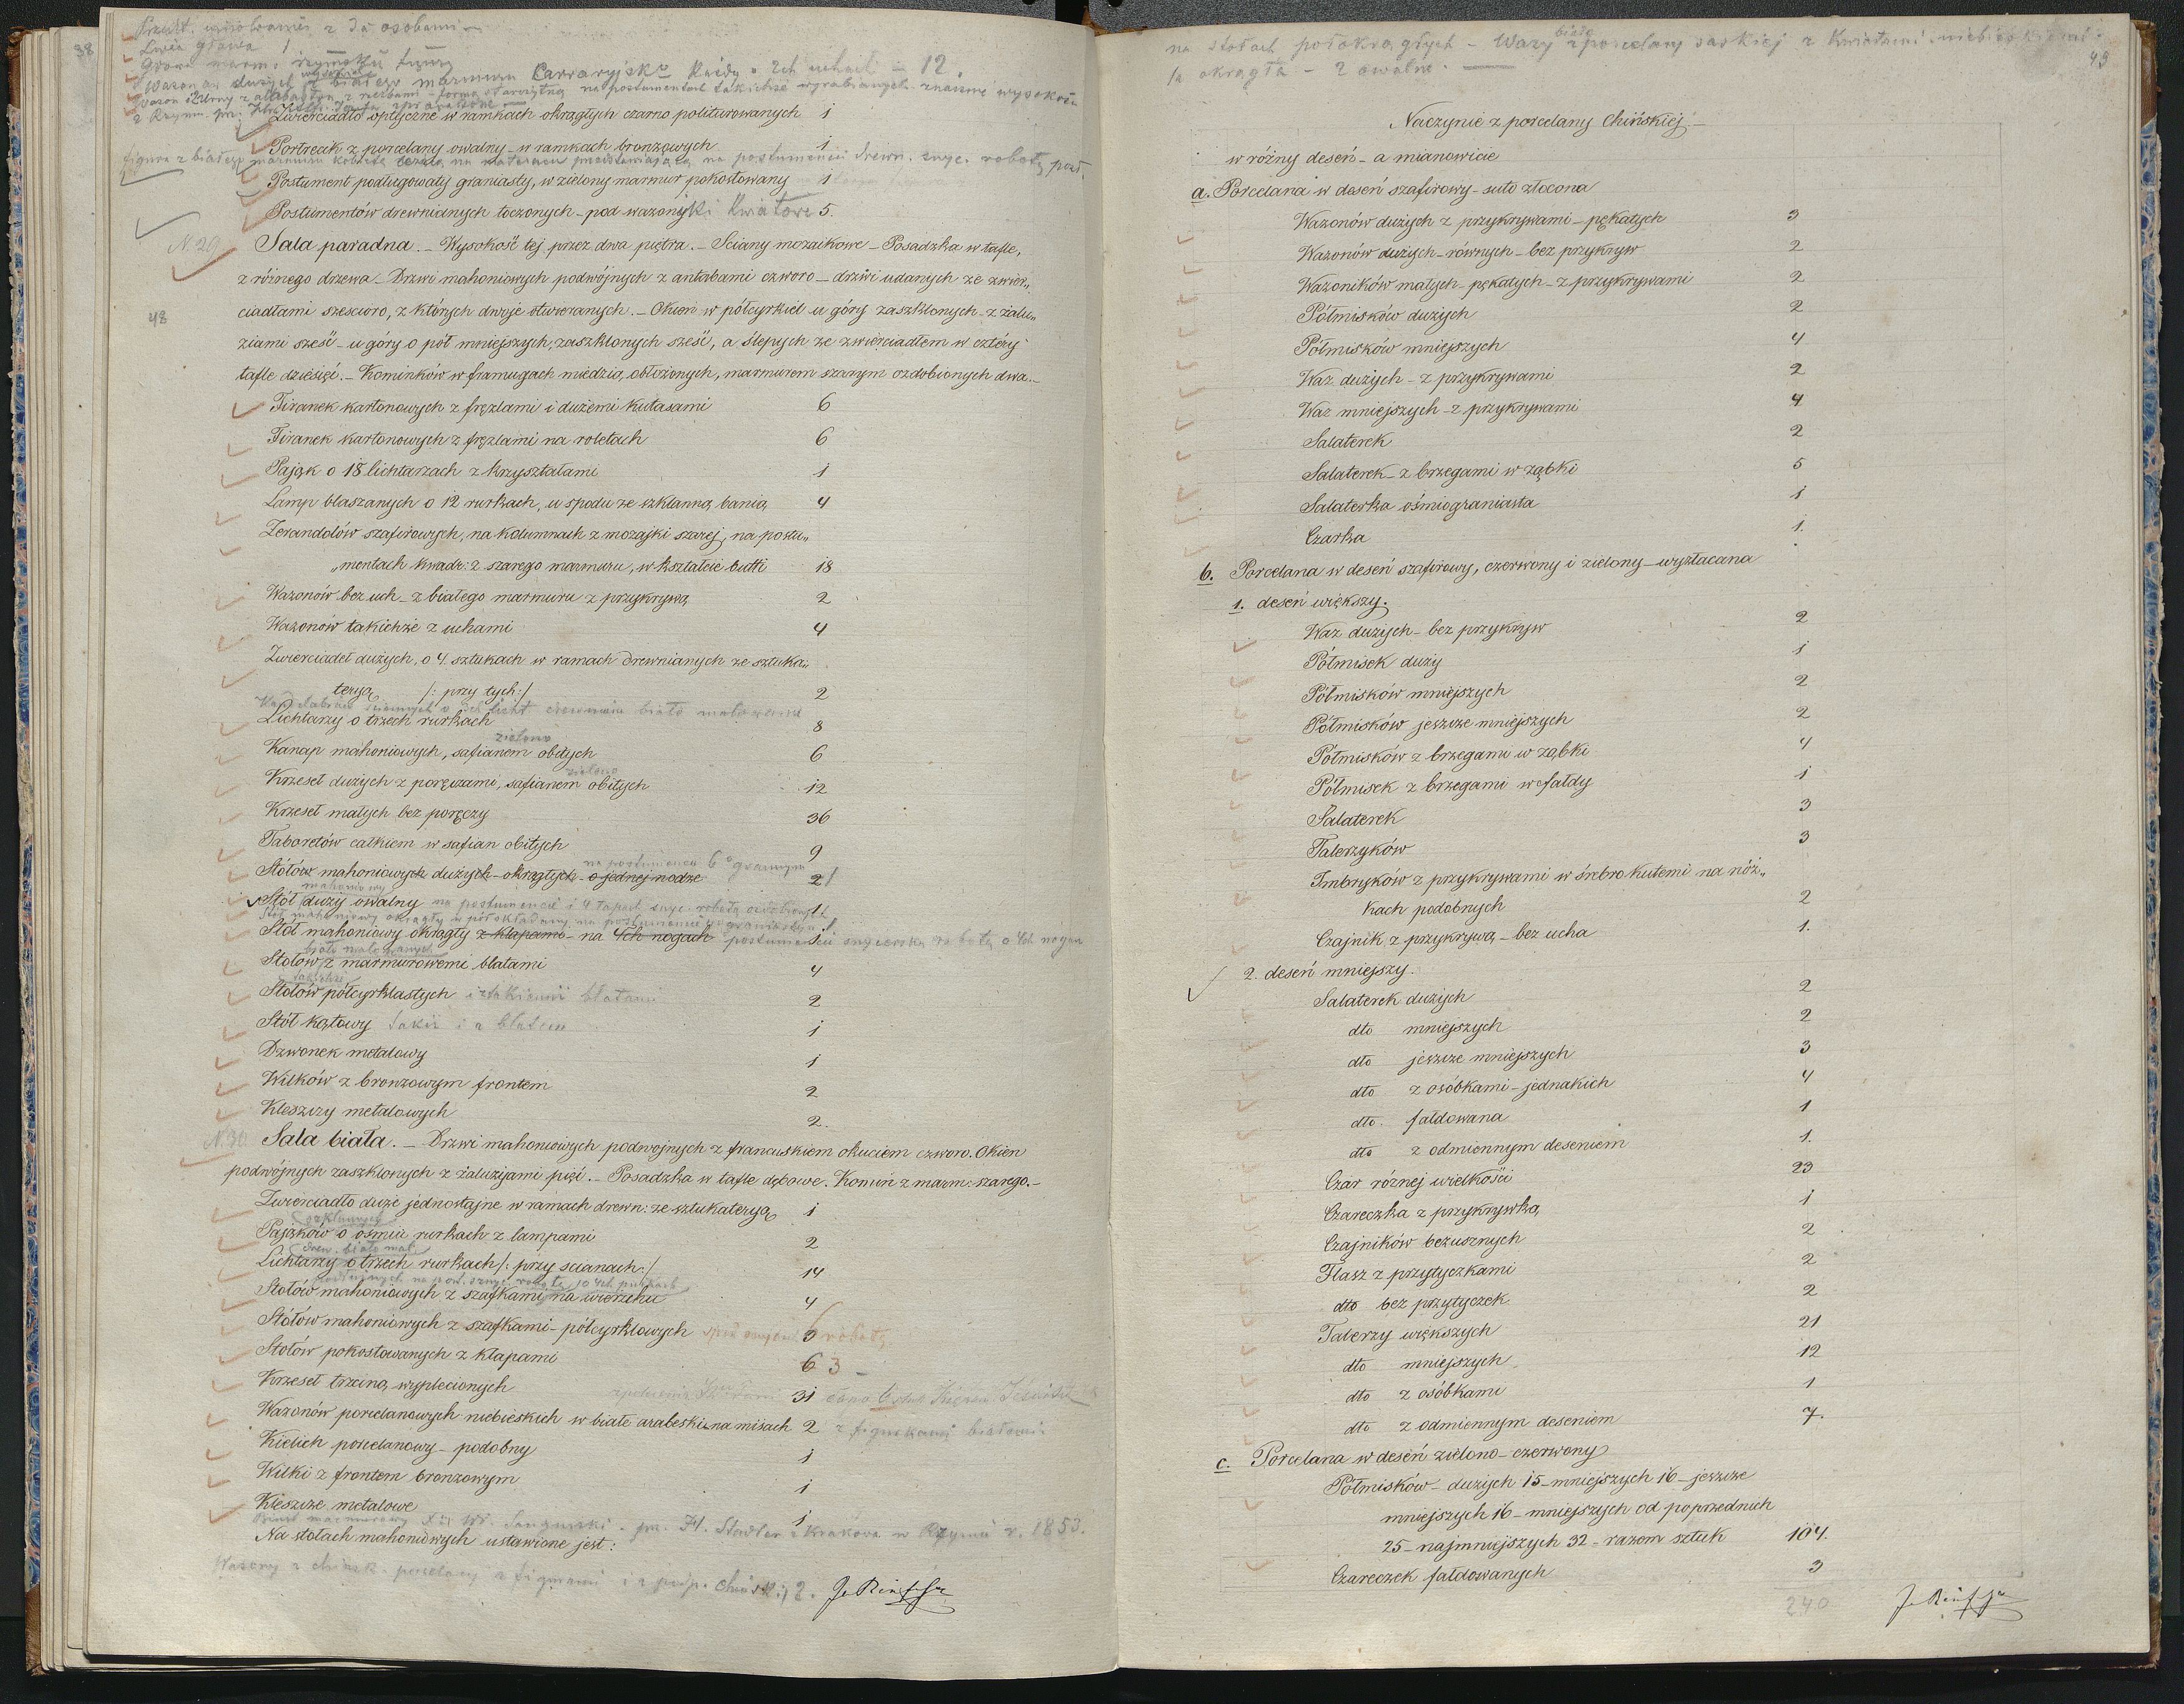 38
Lwia głowa 1
Wazonów dużych z białego marmuru Carraryjsko każdy o 2ch uchach – 12.
na postumentach takichże wyrabianych znacznej wysokości
Zwierciadło optyczne w ramkach okrągłych czarno politurowanych 1
Portrecik z porcelany owalny – w ramkach bronzowych 1
figura z białego marmuru kobietę na materacu przedstawiająca na postumencie drewn. snyc. robotą
Postument podługowaty graniasty, w zielony marmur pokostowany 1
Postumentów drewnianych toczonych – pod wazonyki kwiatowe 5.
N 29 Sala paradna. – Wysokość tej przez dwa piętra. – Sciany mozaikowe – Posadzka w tafle,
z różnego drzewa – Drzwi mahoniowych podwójnych z antabami czworo – drzwi udanych ze zwier„
48
ciadłami sześcioro, z których dwoje otwieranych. – Okien w półcyrkiel u góry zaszklonych – z żalu„
ziami sześć – u góry o pół mniejszych, zaszklonych sześć, a ślepych ze zwierciadłem w cztéry
tafle dziesięć. – Kominków w framugach miedzią obłożonych, marmurem szarym ozdobionych dwa. –
Firanek kartonowych z fręzlami i dużemi kutasami 6
Firanek kartonowych z fręzlami na roletach 6
Pająk o 18 lichtarzach z kryształami 1
Lamp blaszanych o 12 rurkach, u spodu ze szklanną banią 4
Zerandolów szafirowych, na kolumnach z mozajki szarej, na postu„
„mentach kwadr: z szarego marmuru, w kształcie butli 18
Wazonów bez uch – z białego marmuru z przykrywą 2
Wazonów takichże z uchami 4
Zwierciadeł dużych, o 4. sztukach w ramach drewnianych ze sztuka„
teryą /: przy tych :/ 2
Kandelabrów ściennych o 3ch licht drewniane biało malowane
Lichtarzy o trzech rurkach 8
zielono
Kanap mahoniowych, safianem obitych 6
zielono
Krzeseł dużych z poręczami, safianem obitych 12
Krzeseł małych bez poręczy 36
Taboretów całkiem w safian obitych 9
na postumencie 6o grannym
Stołów mahoniowych dużych – okrągłych – o jednej nodze 2 /
mahoniowy
Stół duży owalny na postumencie i 4 łapach snyc. robotą ozdobionych 1
Stół mahoniowy okrągły z klapami – na 4ch nogach postumencie snycerską robotą o 4ch nogach 1
biało malowanych
Stołów z marmurowemi blatami 4
takichże
Stołów półcyrklastych i z takiemi blatami 2
Stół kątowy takiż i z blatem 1
Dzwonek metalowy 1
Wilków z bronzowym frontem 2
Kleszczy metalowych 2.
N 30 Sala biała. – Drzwi mahoniowych podwójnych z francuskiem okuciem czworo. Okien
podwójnych zaszklonych z żaluzyami pięć. – Posadzka w tafle dębowe. Komin z marm: szarego. –
Zwierciadło duże jednostajne w ramach drewn: ze sztukateryą 1
szklannych
Pająków o ośmiu rurkach z lampami 2
drew. biało mal.
Lichtarzy o trzech rurkach /: przy scianach :/ 14
Stołów mahoniowych z szafkami na wierzchu 4
Stołów mahoniowych z szafkami – półcyrklowych
Stołów pokostowanych z klapami 6 3
Krzeseł trzciną wyplecionych 31
Wazonów porcelanowych niebieskich w białe arabeski na misach 2 z figurkami białemi
Kielich porcelanowy – podobny 1
Wilki z frontem bronzowym 1
Kleszcze metalowe 1
Biust marmurowy X. Wł. Sanguszki – pr. H. Stadler z Krakowa w Rzymie r. 1853.
Na stołach mahoniowych ustawione jest:
Wazony z chińsk. porcelany z figurami i z podp. chińsk. 2.
na stołach półokrągłych – Wazy białe z porcelany saskiej z kwiatami niebieskiemi
1a okrągła – 2 owalne. –
49
Naczynie z porcelany Chińskiej –
w różny deseń – a mianowicie
a. Porcelana w deseń szafirowy – suto złocona
Wazonów dużych z przykrywami – pękatych 3
Wazonów dużych – równych – bez przykryw 2
Wazoników małych – pękatych – z przykrywami 2
Półmisków dużych 2
Półmisków mniejszych 4
Waz dużych – z przykrywami 2
Waz mniejszych – z przykrywami 4
Salaterek 2
Salaterek – z brzegami w ząbki 5
Salaterka ośmiograniasta 1
Czarka 1.
b. Porcelana w deseń szafirowy, czerwony i zielony – wyzłacana
1. deseń większy.
Waz dużych – bez przykryw 2
Półmisek duży 1
Półmisków mniejszych 2
Półmisków jeszcze mniejszych 2
Półmisków z brzegami w ząbki 4
Półmisek z brzegami w fałdy 1
Salaterek 3
Talerzyków 3
Imbryków z przykrywami w śrebro kutemi na nóż„
kach podobnych 2
Czajnik z przykrywą – bez ucha 1.
2. deseń mniejszy.
Salaterek dużych 2
dto mniejszych 2
dto jeszcze mniejszych 3
dto z osóbkami – jednakich 4
dto. fałdowana 1
dto z odmiennym deseniem 1.
Czar różnej wielkości 23
Czareczka z przykrywką 1
Czajników bezusznych 2
Flasz z przytyczkami 2
dto bez przytyczek 2
Talerzy większych 21
dto mniejszych 12
dto z osóbkami 1
dto z odmiennym deseniem 7.
c. Porcelana w deseń zielono – czerwony
Półmisków – dużych 15 – mniejszych 16 – jeszcze
mniejszych 16 – mniejszych od poprzednich
25 – najmniejszych 32 – razem sztuk 104.
Czareczek fałdowanych 3
240